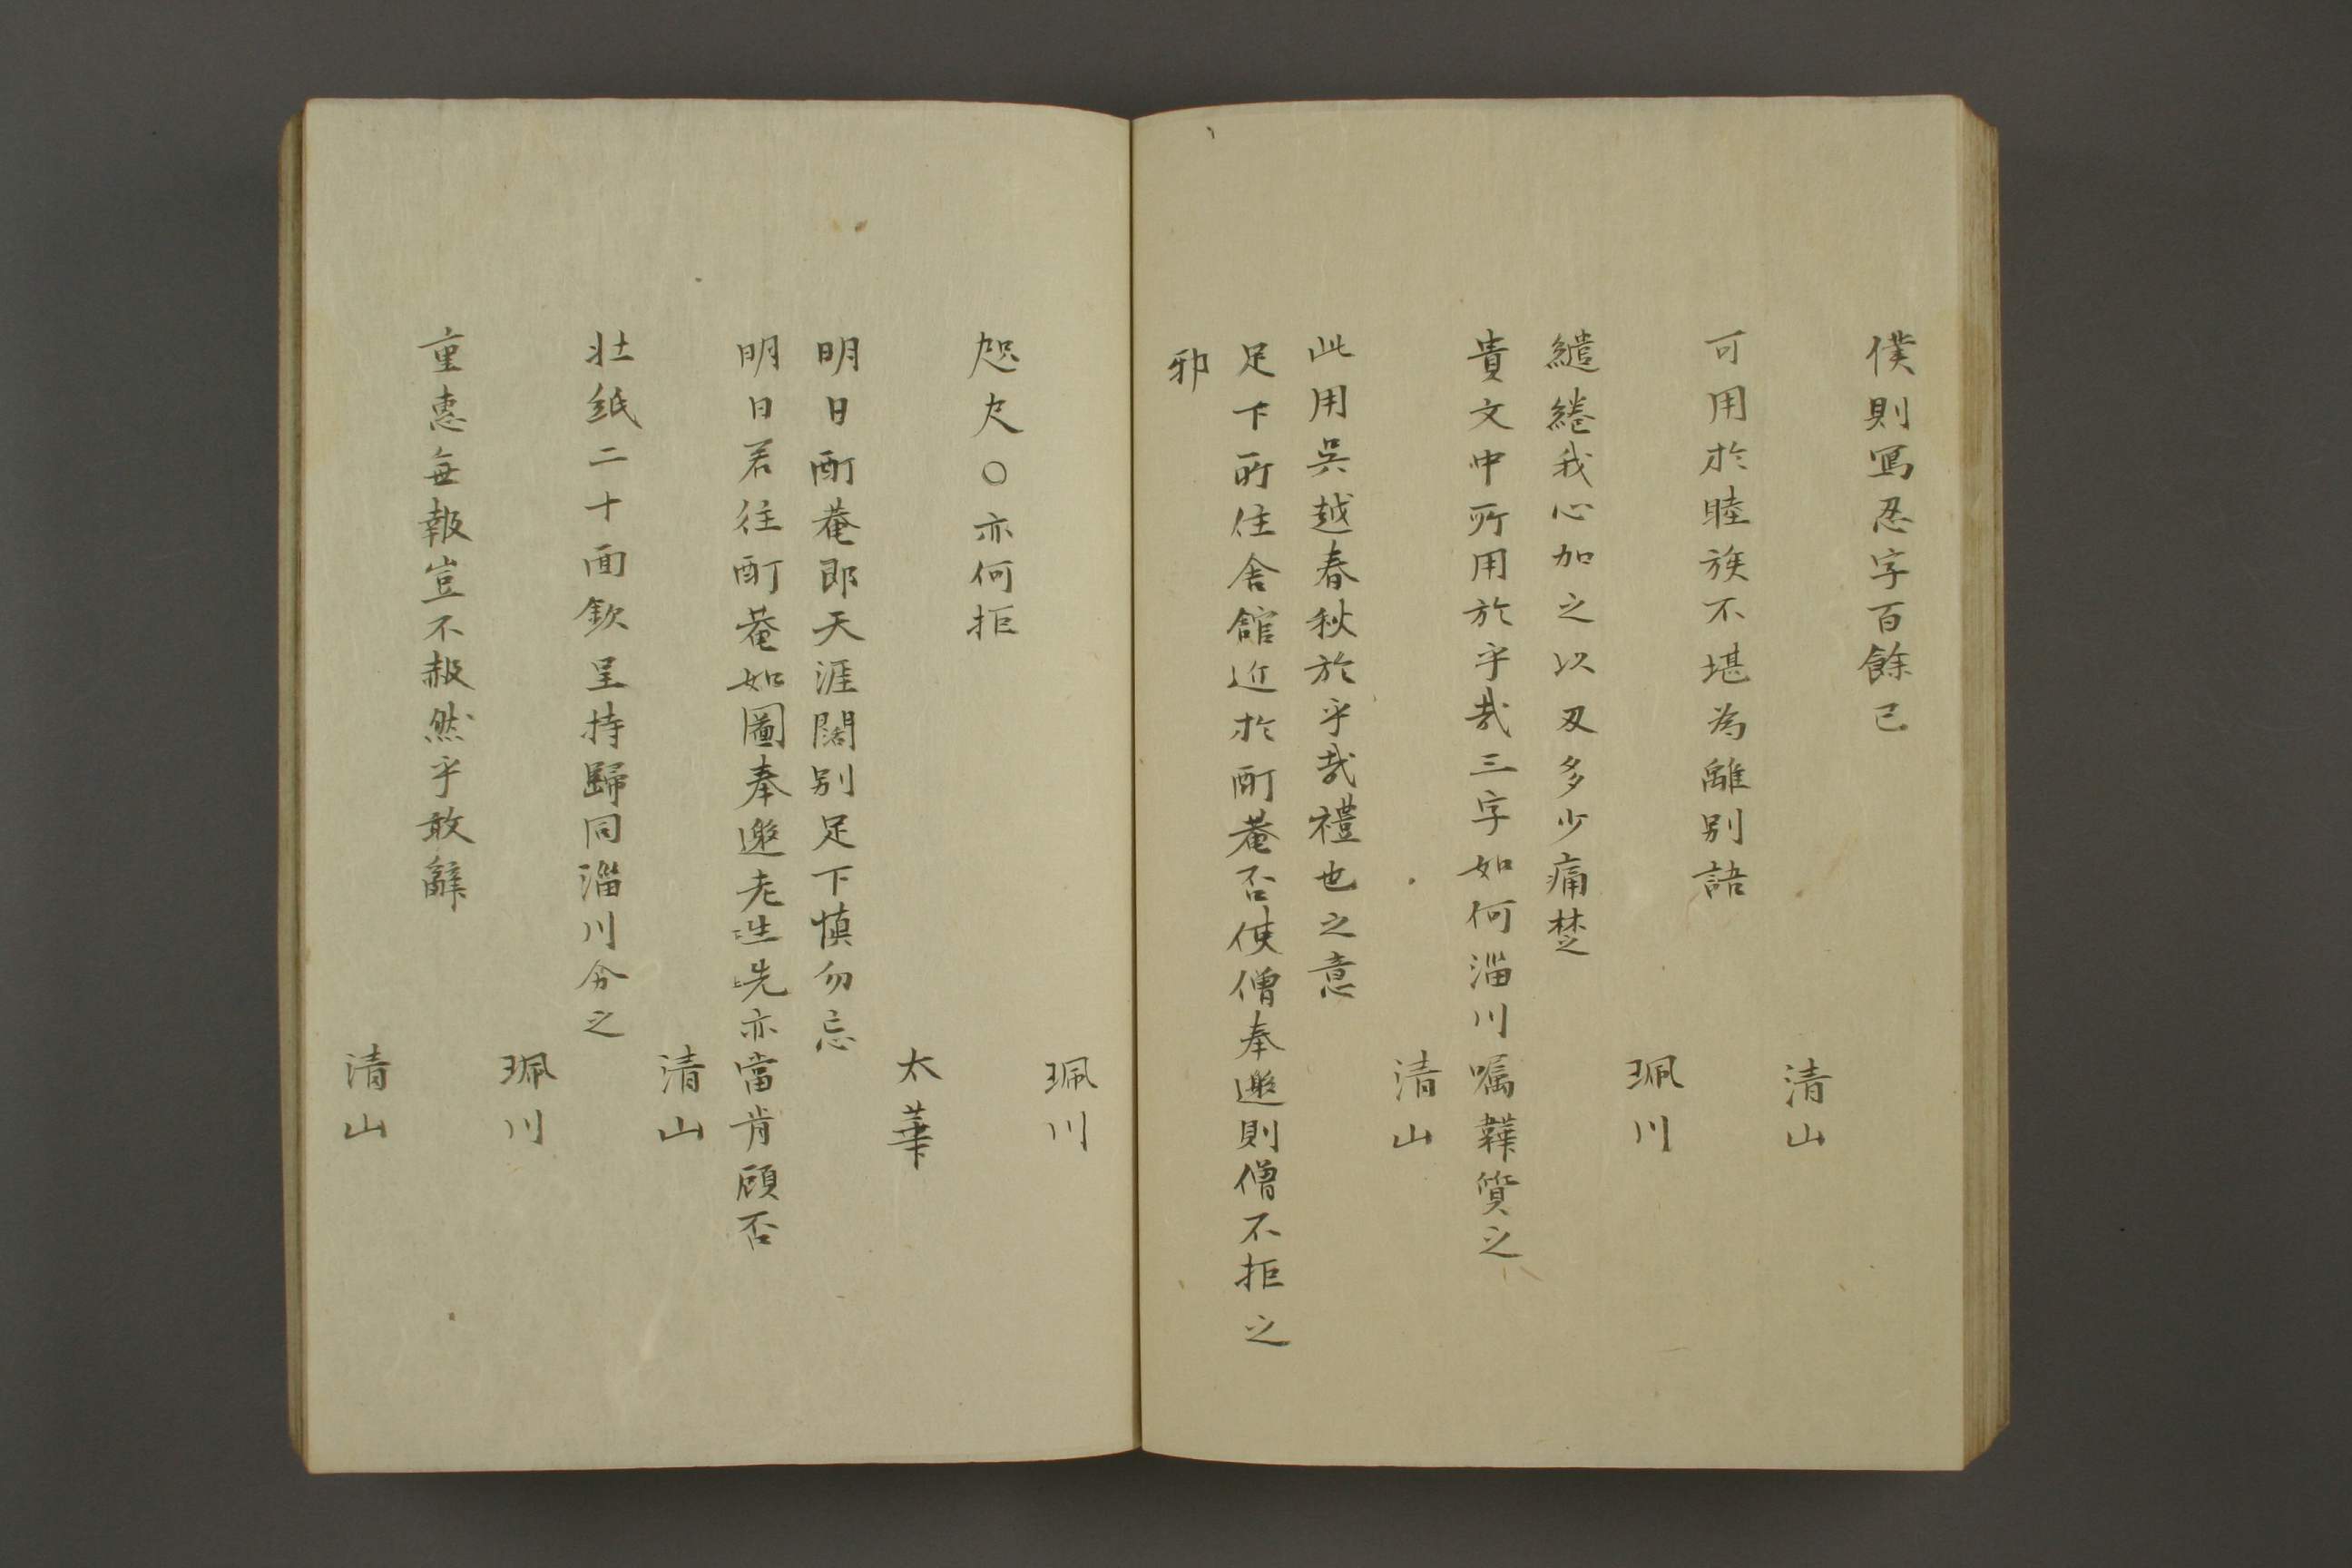 僕則寫忍字百餘已
清山
可用於睦族不堪為離別語
珮川
繾綣我心加之以刃多少痛楚
貴文中所用於乎哉三字如何淄川囑韡質之
清山
此用吳越春秋於乎哉禮也之意
足下所住舍館近於酊菴否使僧奉邀則僧不拒之
邪
珮川
咫尺○亦何拒
太華
明日酊菴即天涯闊別足下慎勿忘
明日若往酊菴如圖奉邀老生先亦當肯顧否
清山
壯紙二十面欽呈持歸同淄川分之
珮川
重惠無報豈不赧然乎敢辭
清山